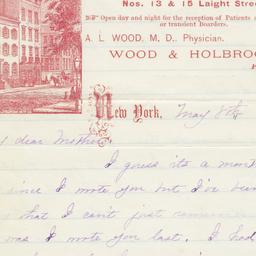 Nos. 13 & 15 Laight Stre
Open day and night for the reception of Patients
or transient Boarders.
A. L. WOOD, M. D., Physician.
WOOD & HOLBRO
New York, May 8th
y dear Mother
I guess its a mon
since I wrote you but I've been
that I can't just remem
was I wrote you last. I had